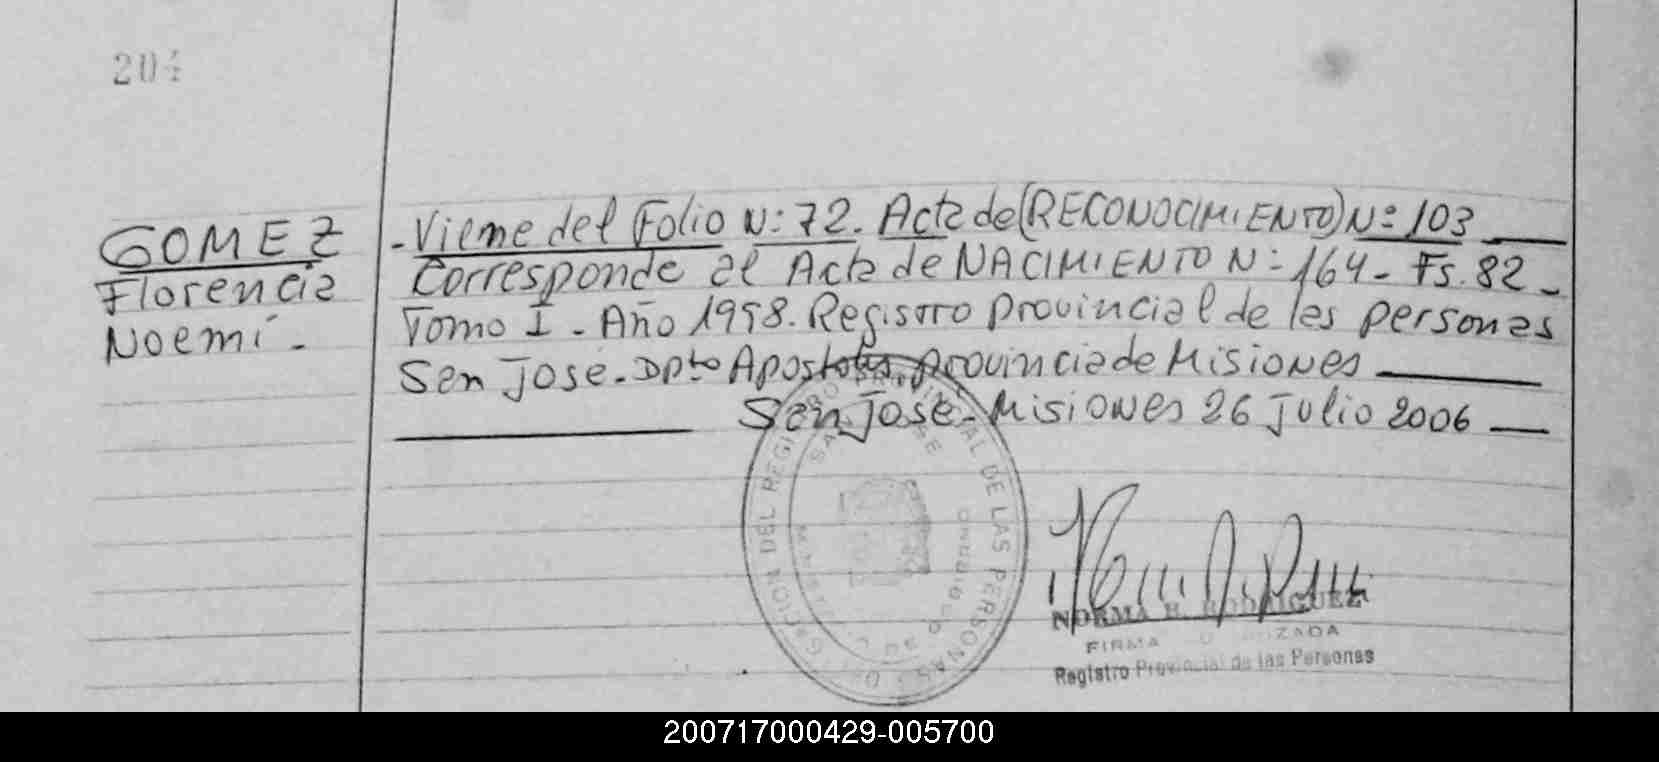 204
GOMEZ
Florencia
Noemí.-
- Viene del Folio N: 72. Acta de (RECONOCIMIENTO) Nº 103
Corresponde al Acta de NACIMIENTO N: 164 - Fs. 82 -
Tomo I - Año 1958. Registro Provincial de las personas
San José. Dpto Apostoles. provincia de Misiones
San José - Misiones 26 Julio 2006
DEL REGISTRO PROVINCIAL DE LAS PERSONAS
SAN JOSE
NORMA B. RODRIGUEZ
FIRMA AUTORIZADA
Registro Provincial de las Personas
200717000429-005700